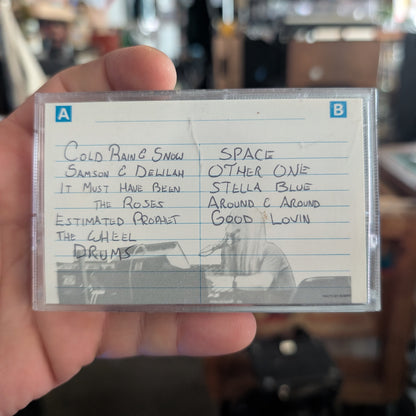 A
B
COLD RAIN & SNOW
SAMSON & DELILAH
IT MUST HAVE BEEN
THE ROSES
ESTIMATED PROPHET
THE WHEEL
DRUMS
SPACE
OTHER ONE
STELLA BLUE
AROUND & AROUND
GOOD LOVIN